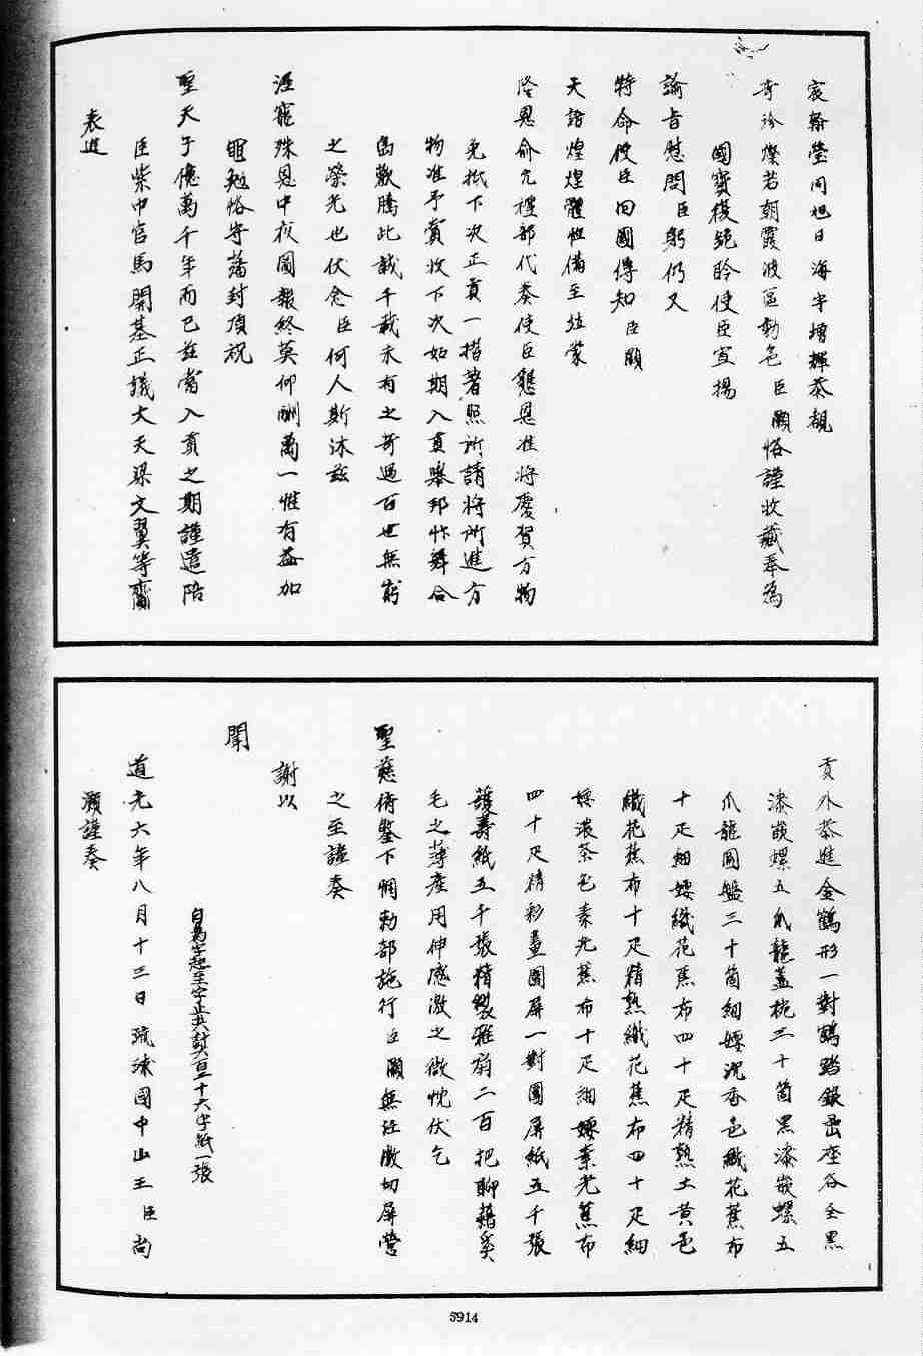 宸翰瑩同旭日海宇增輝恭覩
奇珍燦若朝霞波區動色臣灝恪謹收藏奉為
國寶復繞聆使臣宣揚
諭旨慰問臣躬仍又
特命使臣囬國傳知臣灝
天語煌煌體恤備至玆蒙
隆恩俞允禮部代奏使臣懇恩准將慶賀方物
免抵下次正貢一摺著照所請將所進方
物准予賞收下次如期入貢舉邦忭舞合
島歡騰此誠千載未有之奇遇百世無窮
之榮光也伏念臣何人斯沐茲
渥寵殊恩中夜圖報終莫仰酬萬一惟有益加
黽勉恪守藩封頂祝
聖天子億萬千年而已玆當入貢之期謹遣陪
臣紫巾官馬開基正議大夫梁文翼等齎
表進
貢外恭進金鶴形一對鶴踏銀嵒座各全黑
漆嵌螺五爪龍蓋椀三十箇黑漆嵌螺五
爪龍圓盤三十箇細嫩沉香色織花蕉布
十疋細嫩織花蕉布四十疋精熟土黃色
織花蕉布十疋精熟織花蕉布四十疋細
嫩濃茶色素光蕉布十疋細嫩素光蕉布
四十疋精彩畫圍屏一對圍屏紙五千張
護壽紙五千張精製雅扇二百把聊藉奚
毛之薄產用伸感激之微忱伏乞
聖慈俯鑒下悃勅部施行臣灝無任激切屏營
之至謹奏
謝以
聞
自為字起至字止共計百二十六字紙一張
道光六年八月十三日琉球國中山王臣尚
灝謹奏
5914